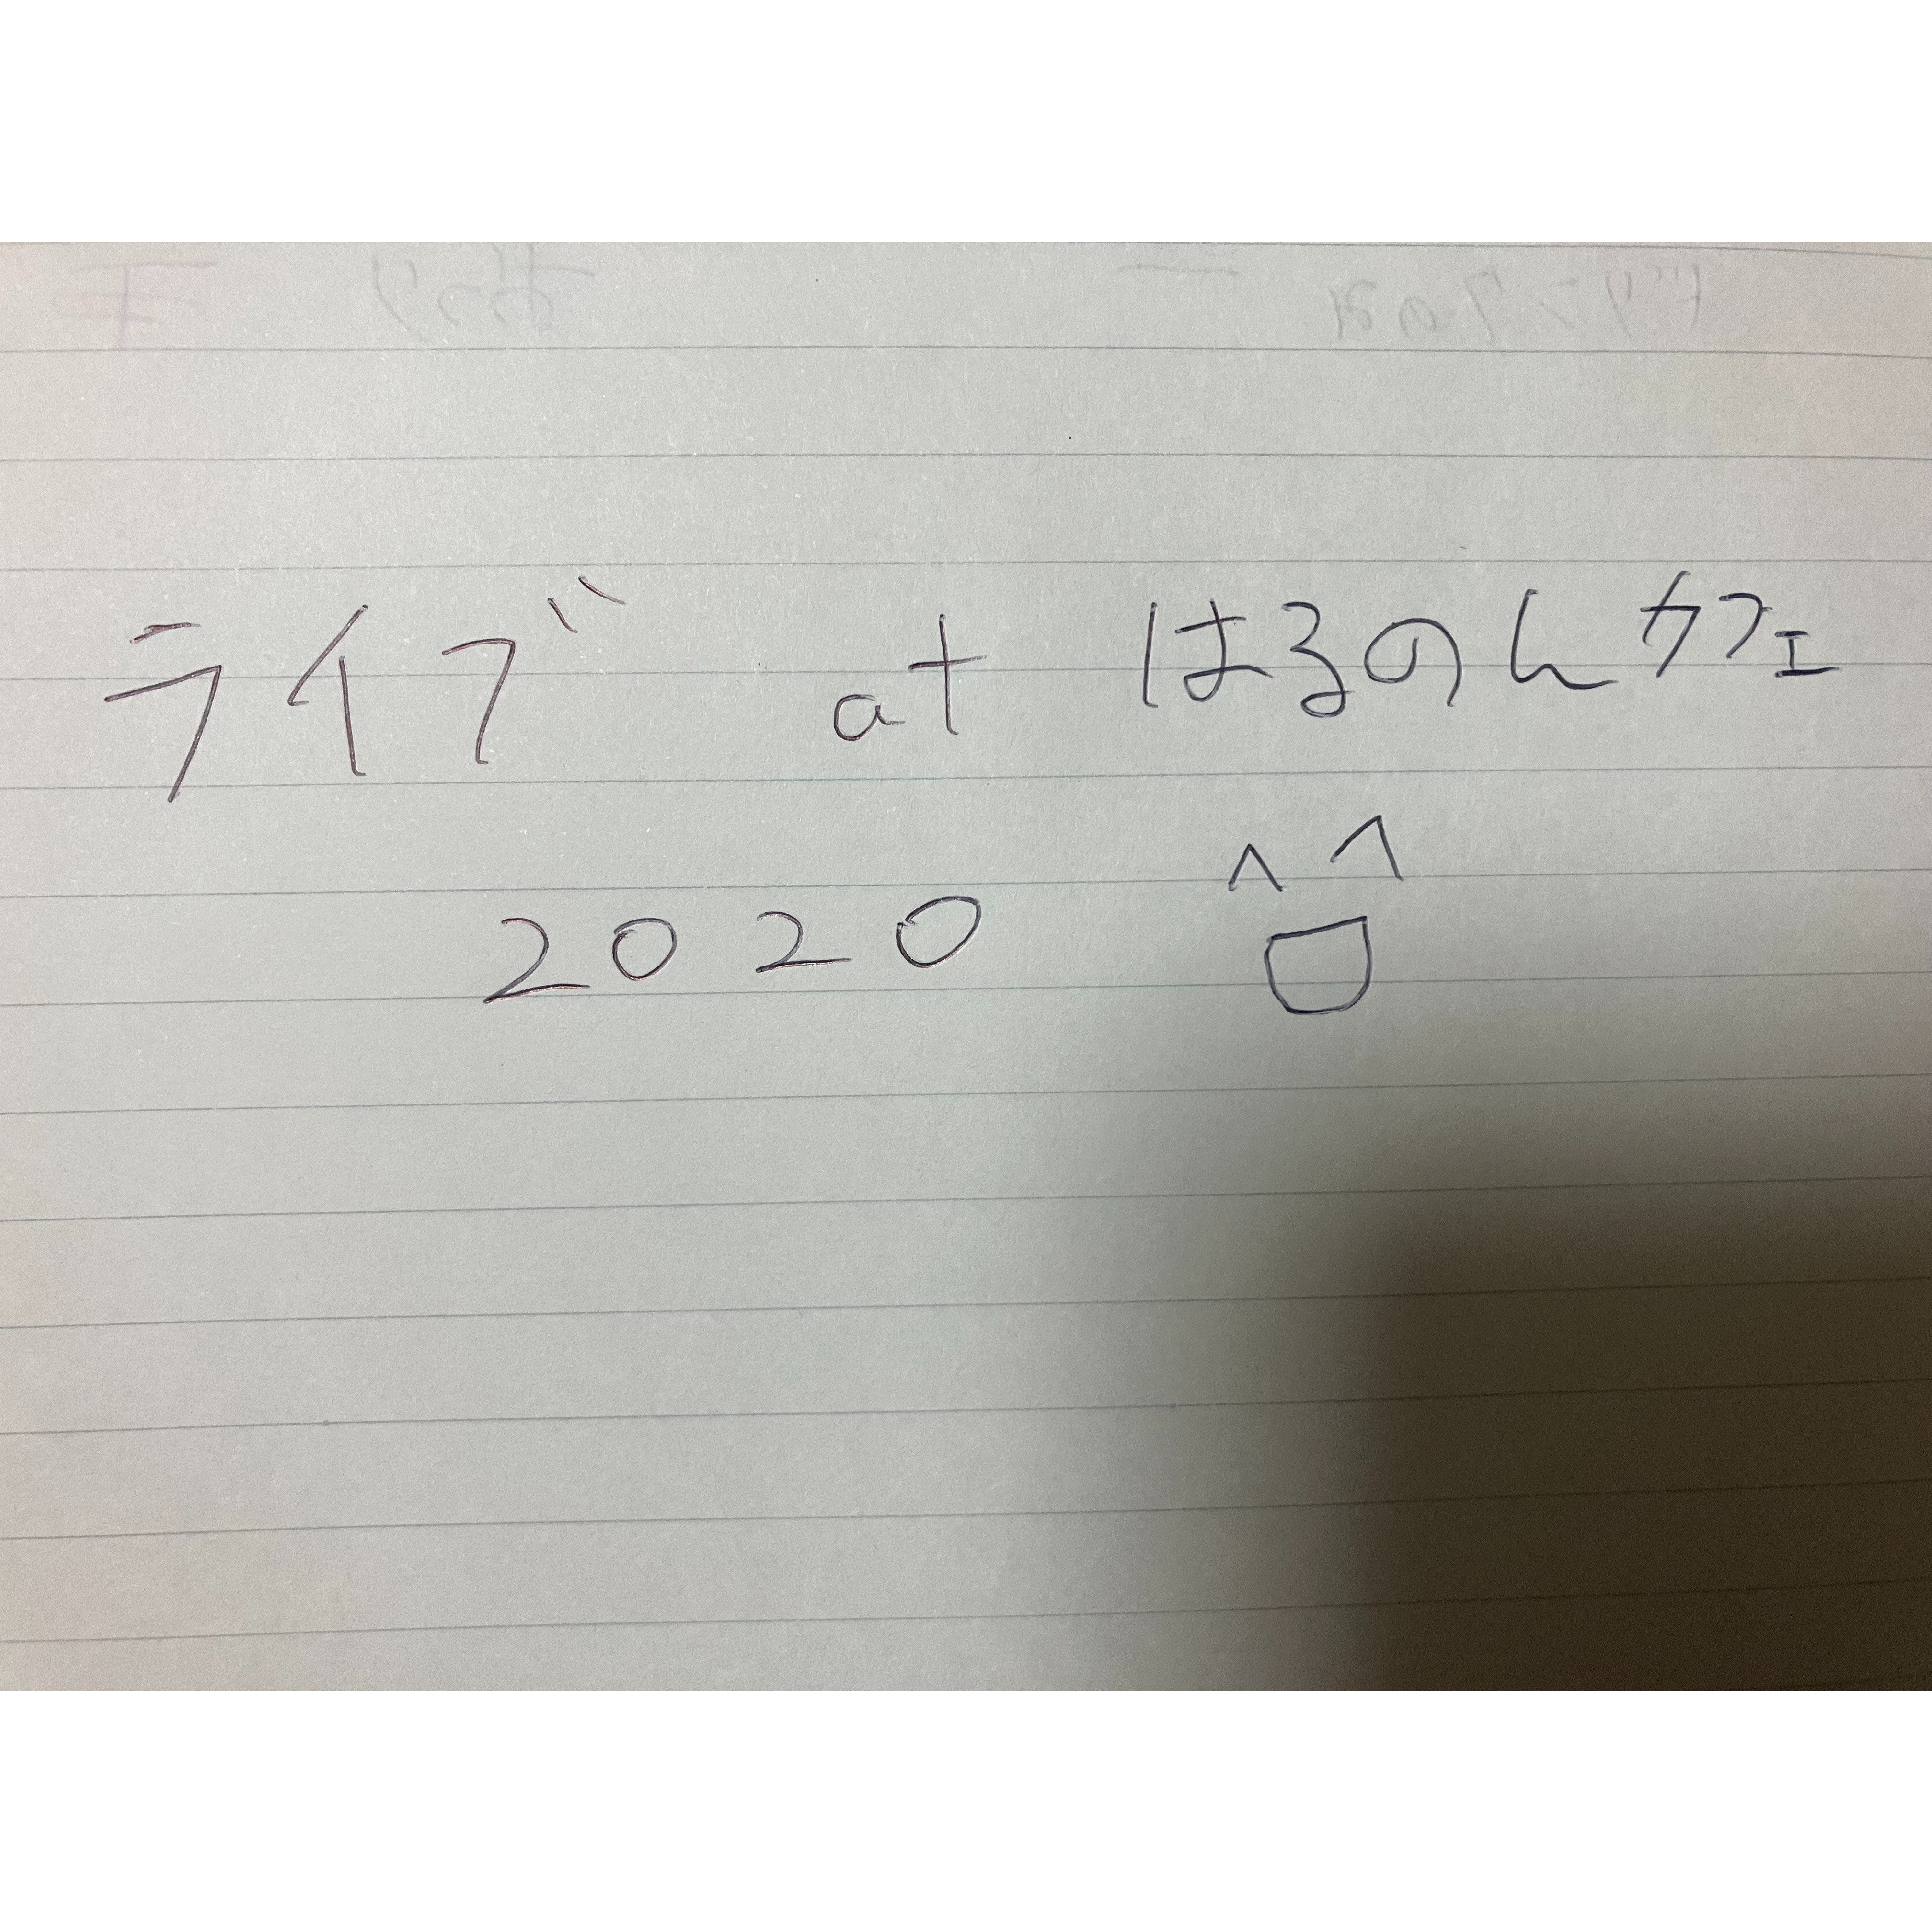 ライブ at はるのんカフェ
2020